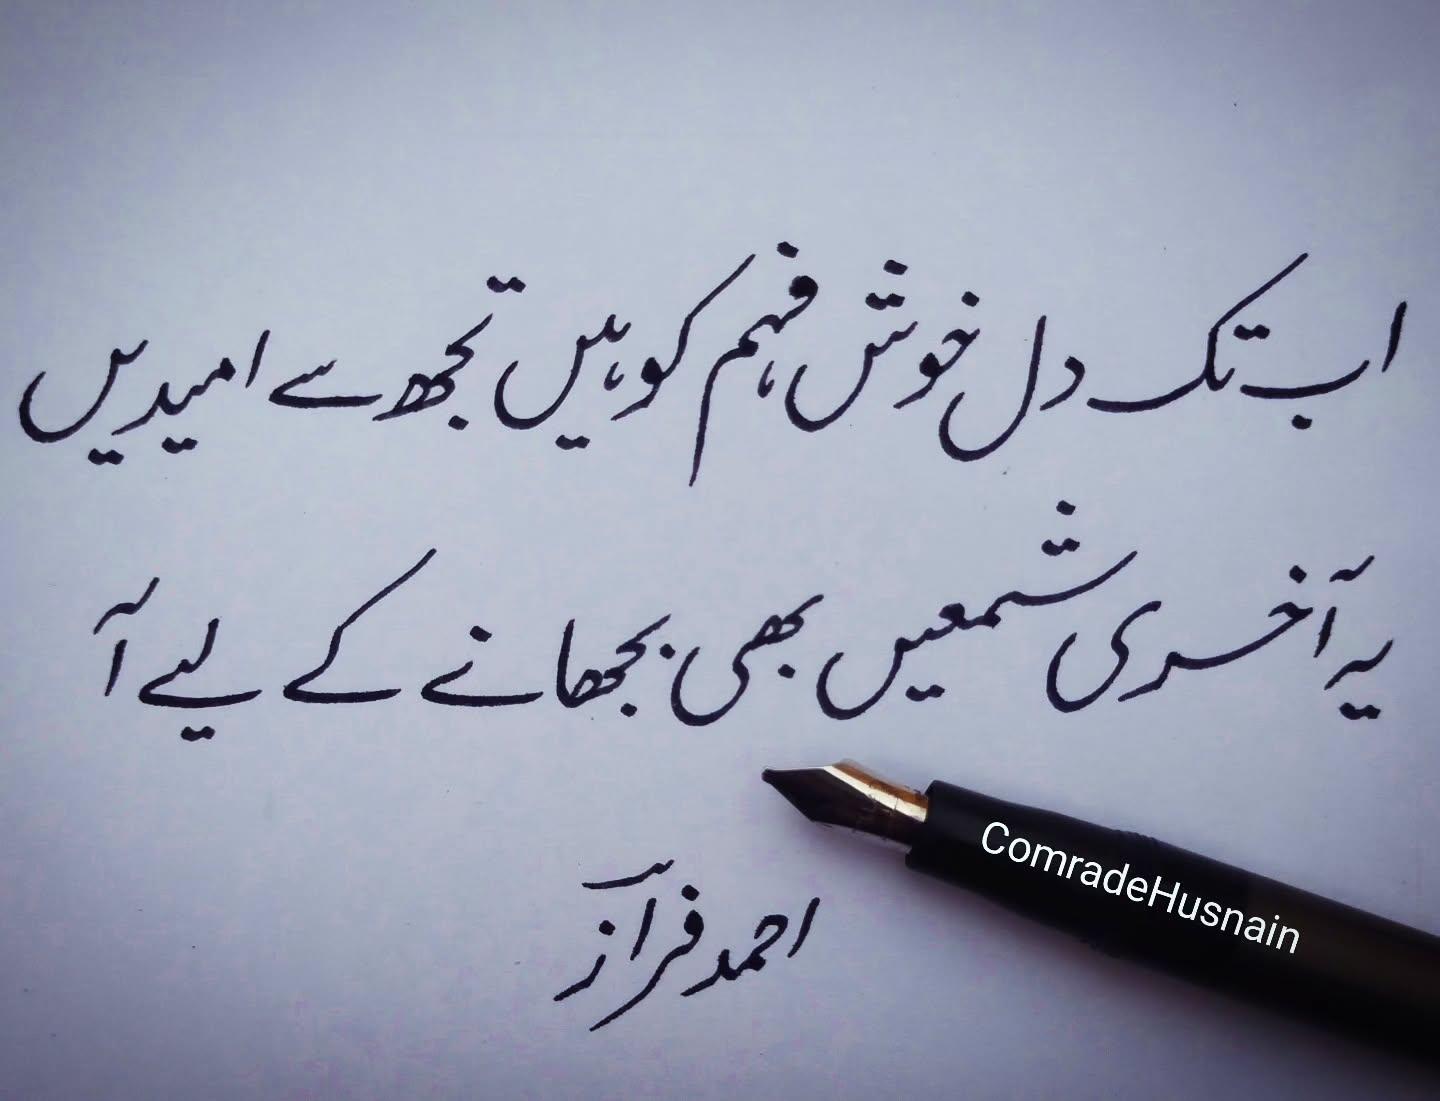 اب تک دل خوش فہم کو ہیں تجھ سے امیدیں
یہ آخری شمعیں بھی بجھانے کے لیے آ
احمد فراز
ComradeHusnain